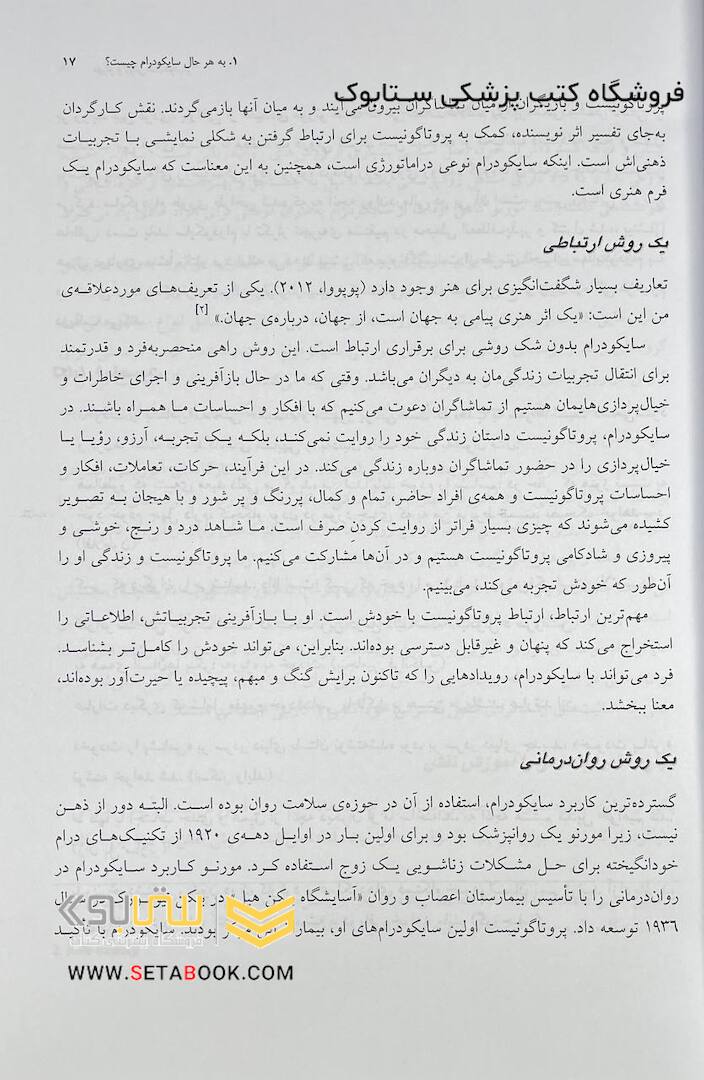 ۱. به هر حال سایکودرام چیست؟ ۱۷
فروشگاه کتب پزشکی ستابوک
پروتاگونیست و بازیگران از میان تماشاگران بیرون می‌آیند و به میان آنها بازمی‌گردند. نقش کارگردان
به‌جای تفسیر اثر نویسنده، کمک به پروتاگونیست برای ارتباط گرفتن به شکلی نمایشی با تجربیات
ذهنی‌اش است. اینکه سایکودرام نوعی دراماتورژی است، همچنین به این معناست که سایکودرام یک
فرم هنری است.
یک روش ارتباطی
تعاریف بسیار شگفت‌انگیزی برای هنر وجود دارد (پوپووا، ۲۰۱۲). یکی از تعریف‌های موردعلاقه‌ی
من این است: «یک اثر هنری پیامی به جهان است، از جهان، درباره‌ی جهان.» [۲]
سایکودرام بدون شک روشی برای برقراری ارتباط است. این روش راهی منحصربه‌فرد و قدرتمند
برای انتقال تجربیات زندگی‌مان به دیگران می‌باشد. وقتی که ما در حال بازآفرینی و اجرای خاطرات و
خیال‌پردازی‌هایمان هستیم از تماشاگران دعوت می‌کنیم که با افکار و احساسات ما همراه باشند. در
سایکودرام، پروتاگونیست داستان زندگی خود را روایت نمی‌کند، بلکه یک تجربه، آرزو، رؤیا یا
خیال‌پردازی را در حضور تماشاگران دوباره زندگی می‌کند. در این فرآیند، حرکات، تعاملات، افکار و
احساسات پروتاگونیست و همه‌ی افراد حاضر، تمام و کمال، پررنگ و پر شور و با هیجان به تصویر
کشیده می‌شوند که چیزی بسیار فراتر از روایت کردنِ صرف است. ما شاهد درد و رنج، خوشی و
پیروزی و شادکامی پروتاگونیست هستیم و در آن‌ها مشارکت می‌کنیم. ما پروتاگونیست و زندگی او را
آن‌طور که خودش تجربه می‌کند، می‌بینیم.
مهم‌ترین ارتباط، ارتباط پروتاگونیست با خودش است. او با بازآفرینی تجربیاتش، اطلاعاتی را
استخراج می‌کند که پنهان و غیرقابل دسترسی بوده‌اند. بنابراین، می‌تواند خودش را کامل‌تر بشناسد.
فرد می‌تواند با سایکودرام، رویدادهایی را که تاکنون برایش گنگ و مبهم، پیچیده یا حیرت‌آور بوده‌اند،
معنا ببخشد.
یک روش روان‌درمانی
گسترده‌ترین کاربرد سایکودرام، استفاده از آن در حوزه‌ی سلامت روان بوده است. البته دور از ذهن
نیست، زیرا مورنو یک روانپزشک بود و برای اولین بار در اوایل دهه‌ی ۱۹۲۰ از تکنیک‌های درام
خودانگیخته برای حل مشکلات زناشویی یک زوج استفاده کرد. مورنو کاربرد سایکودرام در
روان‌درمانی را با تأسیس بیمارستان اعصاب و روان «آسایشگاه بیکن هیل» در بیکن نیویورک در سال
۱۹۳۶ توسعه داد. پروتاگونیست اولین سایکودرام‌های او، بیماران بودند. سایکودرام با تأکید
ستابوک
فروشگاه اینترنتی کتاب
WWW.SETABOOK.COM